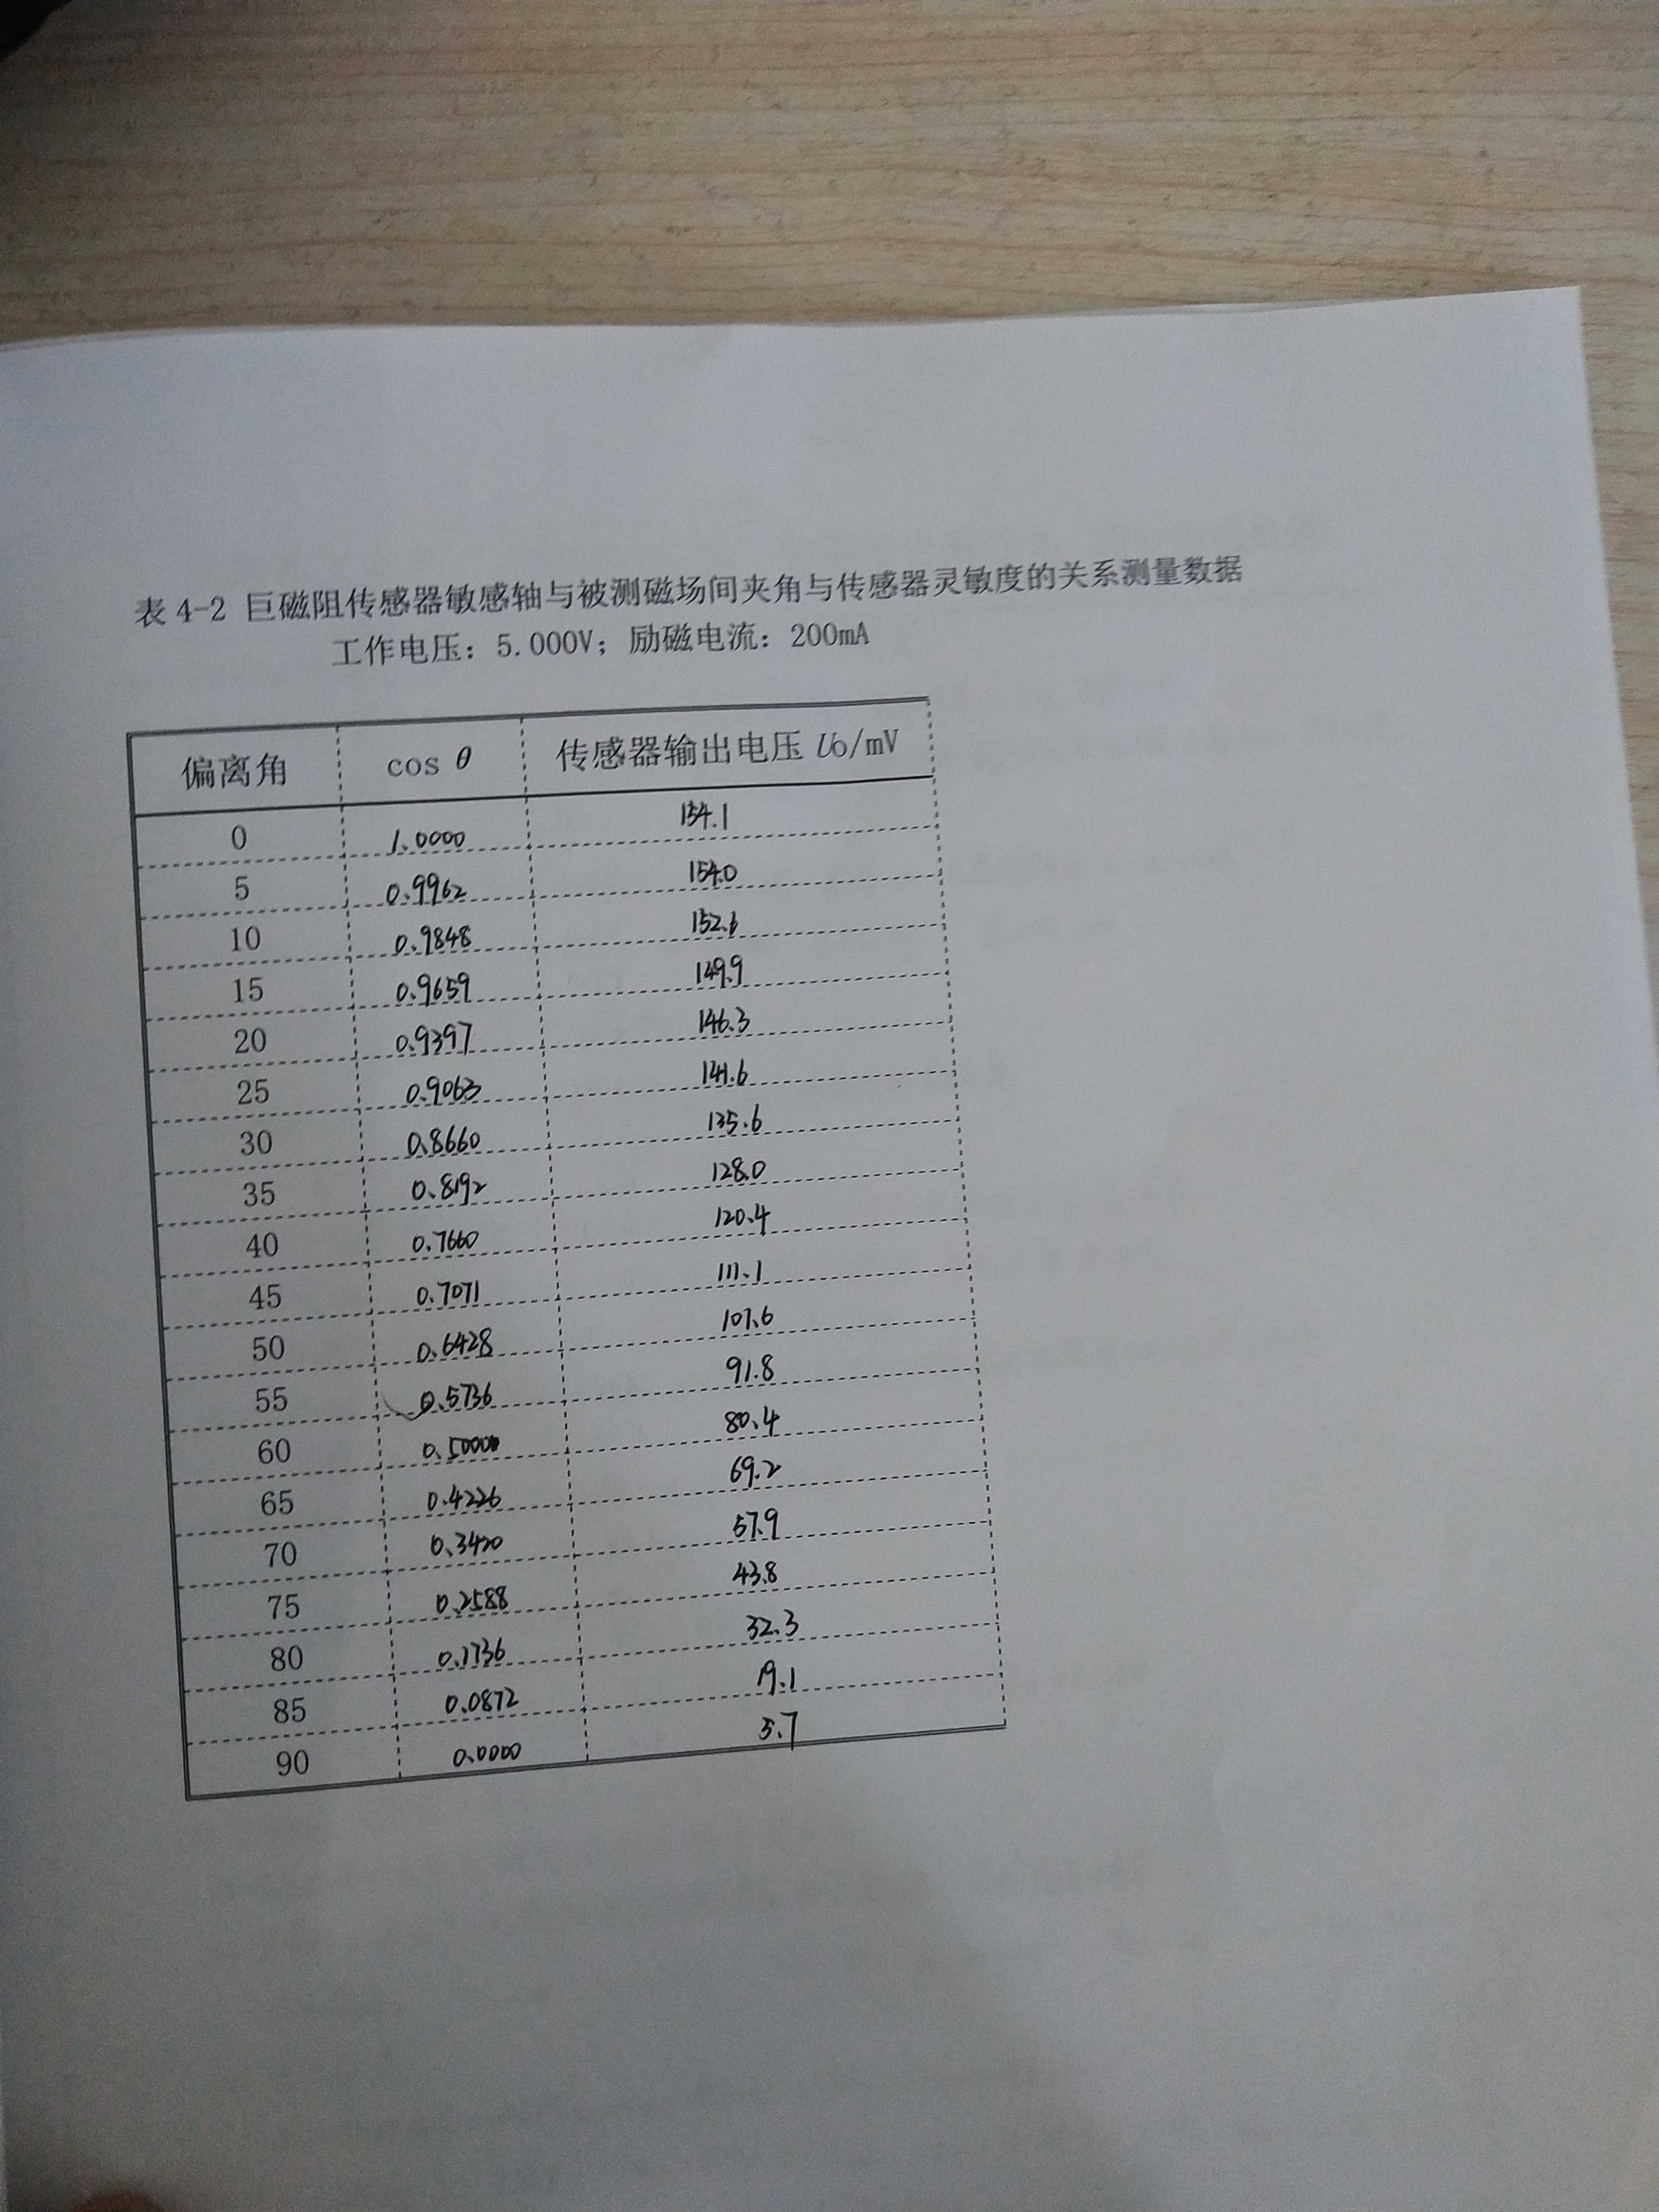 表 4-2 巨磁阻传感器敏感轴与被测磁场间夹角与传感器灵敏度的关系测量数据
工作电压：5.000V；励磁电流：200mA
偏离角 cos θ 传感器输出电压 Uo/mV
0 1.0000 154.1
5 0.9962 154.0
10 0.9848 152.6
15 0.9659 149.9
20 0.9397 146.3
25 0.9063 141.6
30 0.8660 135.6
35 0.8192 128.0
40 0.7660 120.4
45 0.7071 111.1
50 0.6428 101.6
55 0.5736 91.8
60 0.5000 80.4
65 0.4226 69.2
70 0.3420 57.9
75 0.2588 43.8
80 0.1736 32.3
85 0.0872 19.1
90 0.0000 5.7